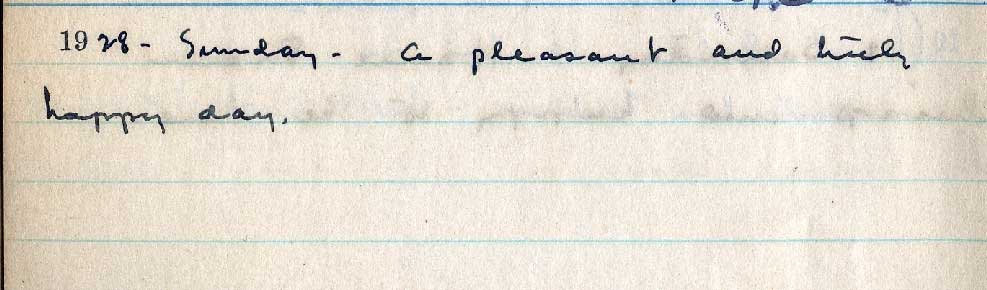 1928 - Sunday - A pleasant and
happy day.